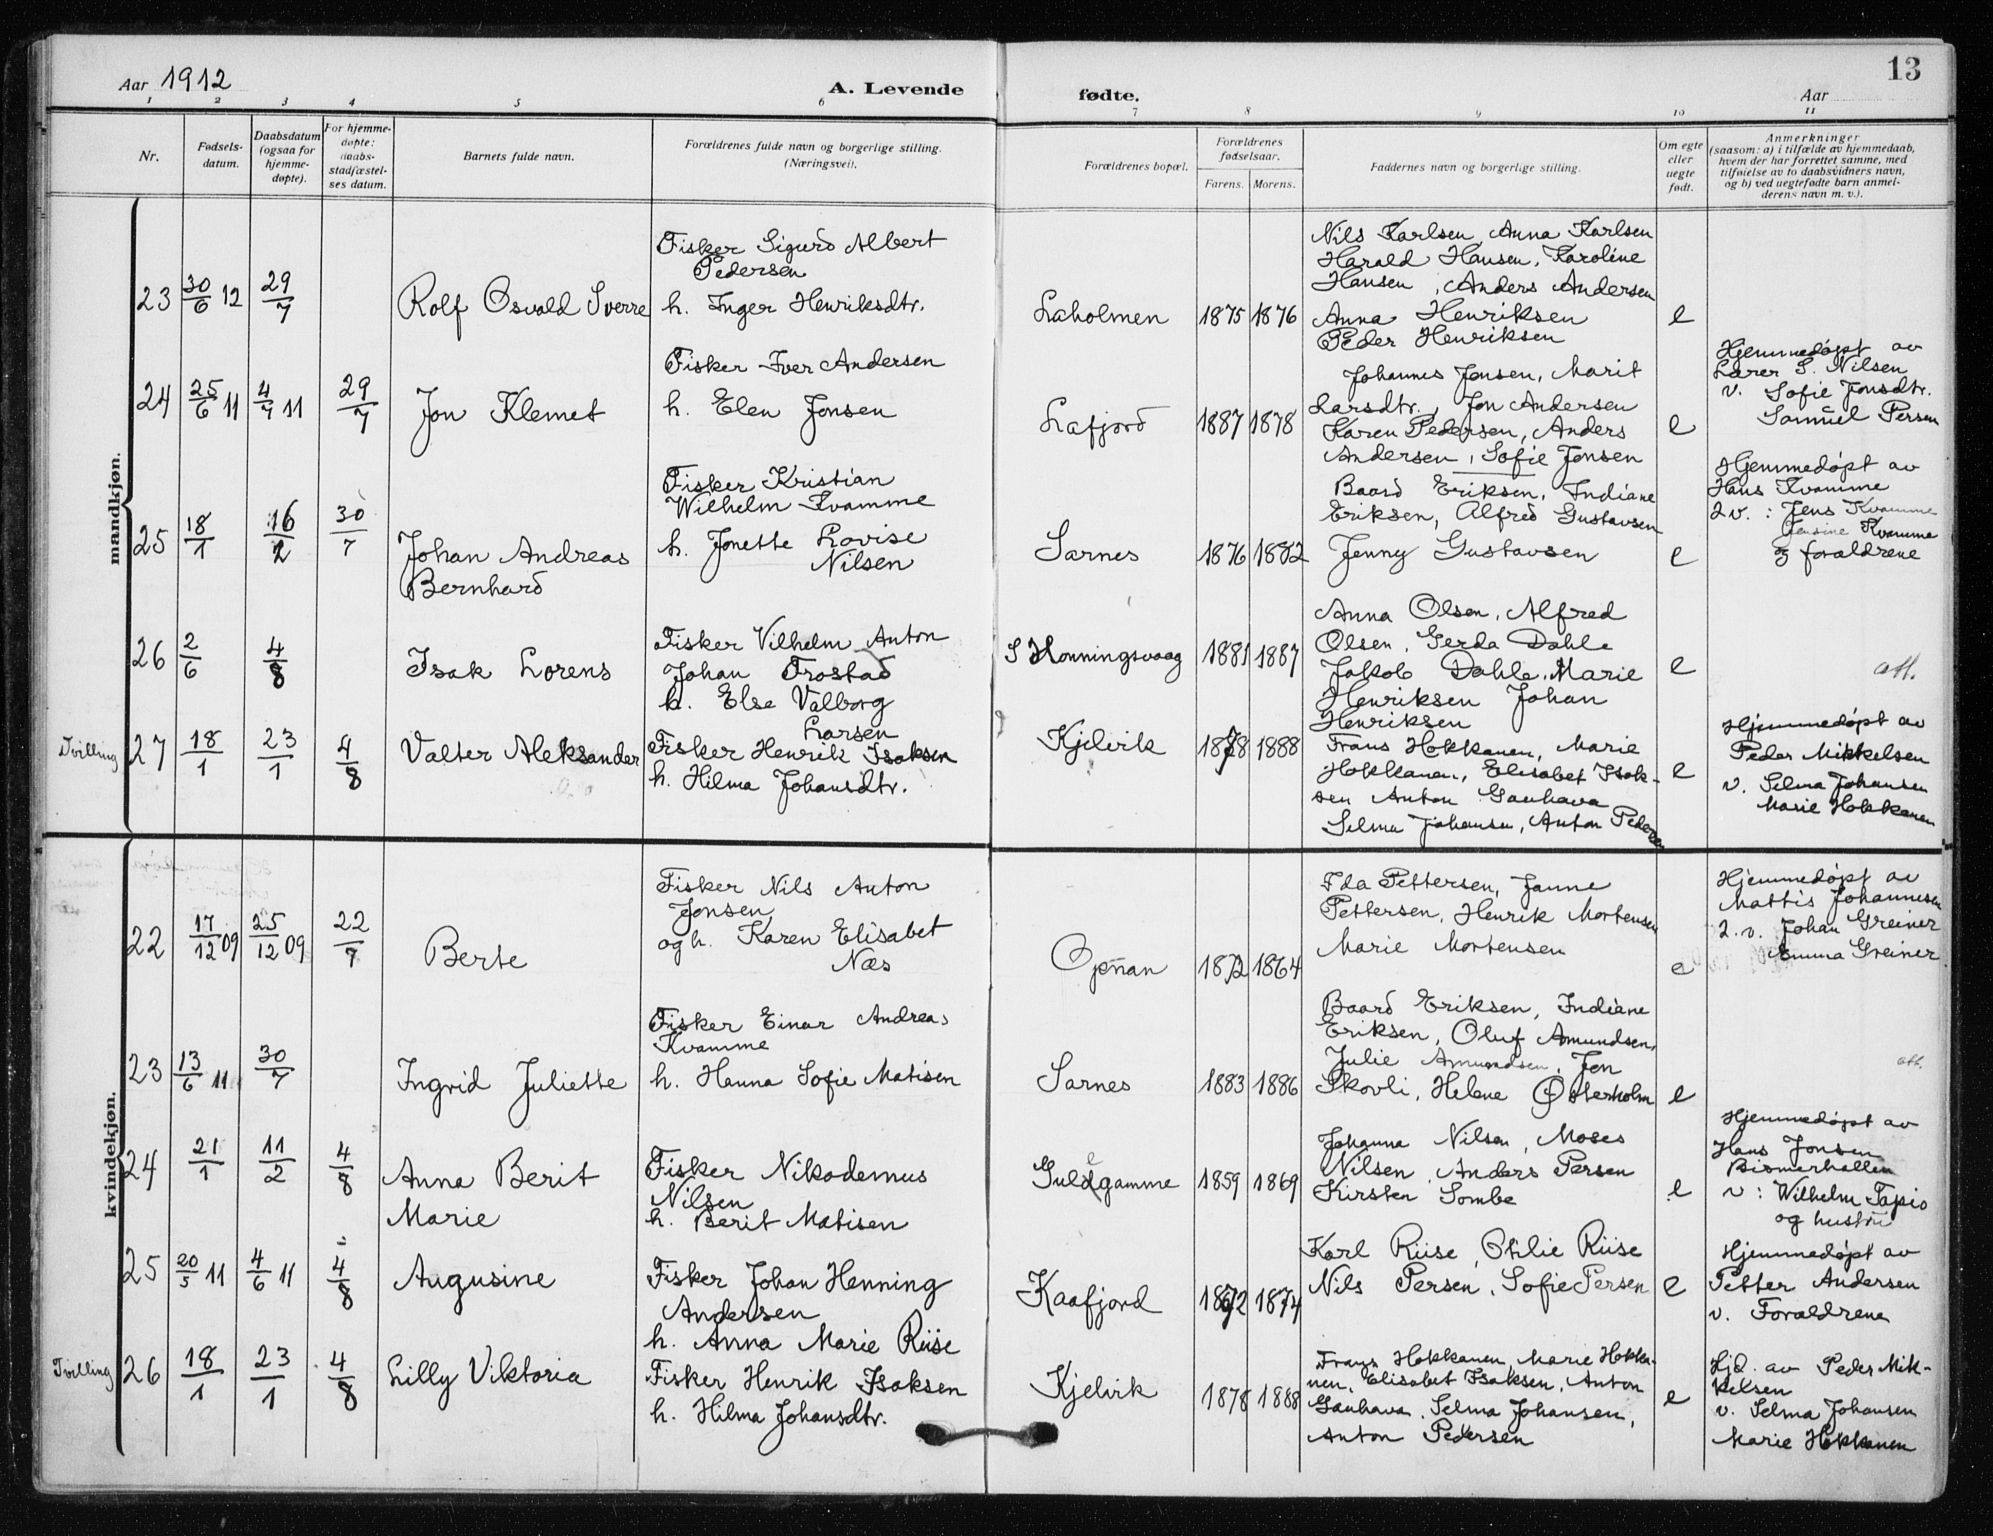 13
Aar 1912
A. Levende
fødte.
Aar
1 2 3 4 5 6 7 8 9 10 11
Nr.
Fødsels-
datum.
Daabsdatum
(ogsaa for
hjemme-
døpte).
For hjemme-
døpte:
daabs-
stadfæstel-
ses datum.
Barnets fulde navn.
Forældrenes fulde navn og borgerlige stilling.
(Næringsvei).
Forældrenes bopæl.
Forældrenes
fødselsaar.
Farens. Morens.
Faddernes navn og borgerlige stilling.
Om egte
eller
uegte
født.
Anmerkninger
(saasom: a) i tilfælde av hjemmedaab,
hvem der har forrettet samme, med
tilføielse av to daabsvidners navn,
og b) ved uegtefødte barn anmel-
derens navn m. v.).
mandkjøn.
23 30/6 12 29/7
Rolf Osvald Sverre
Fisker Sigurd Albert
Pedersen
h. Inger Henriksdtr.
Laholmen 1875 1876
Nils Karlsen, Anna Karlsen
Harald Hansen, Karoline
Hansen, Anders Andersen
Anna Henriksen
Peder Henriksen
e
24 25/6 11 4/7 11 29/7
Jon Klemet
Fisker Iver Andersen
h. Elen Jonsen
Lafjord 1887 1878
Johannes Jonsen, Marit
Larsdtr., Jon Andersen
Karen Pedersen, Anders
Andersen, Sofie Jonsen
e
Hjemmedøpt av
Lærer S. Nilsen
v. Sofie Jonsdtr.
Samuel Persen
25 18/1 16/2 30/7
Johan Andreas
Bernhard
Fisker Kristian
Wilhelm Kvamme
h. Jonette Lovise
Nilsen
Sarnes 1876 1882
Baard Eriksen, Indiane
Eriksen, Alfred Gustavsen
Jenny Gustavsen
e
Hjemmedøpt av
Hans Kvamme
2 v. : Jens Kvamme
Jensine Kvamme
og forældrene
26 2/6 4/8
Isak Lorens
Fisker Vilhelm Anton
Johan Trostad
h. Else Valborg
Larsen
S Honningsvaag 1881 1887
Anna Olsen, Alfred
Olsen, Gerda Dahle
Jakob Dahle, Marie
Henriksen Johan
Henriksen
e
att.
Tvilling 27 18/1 23/1 4/8
Valter Aleksander
Fisker Henrik Isaksen
h. Hilma Johansdtr.
Kjelvik 1878 1888
Frans Hokkanen, Marie
Hokkanen, Elisabet Isak-
sen Anton Gauhava
Selma Johansen, Anton Pedersen
e
Hjemmedøpt av
Peder Mikkelsen
v. Selma Johansen
Marie Hokkanen
kvindekjøn.
22 17/12 09 25/12 09 22/7
Berte
Fisker Nils Anton
Jonsen
og h. Karen Elisabet
Næs
Opnan 1872 1864
Ida Pettersen, Janne
Pettersen, Henrik Mortensen
Marie Mortensen
e
Hjemmedøpt av
Mattis Johannesen
2. v. Johan Greiner
Emma Greiner
23 13/6 11 30/7
Ingrid Juliette
Fisker Einar Andreas
Kvamme
h. Hanna Sofie Matisen
Sarnes 1883 1886
Baard Eriksen, Indiane
Eriksen, Oluf Amundsen,
Julie Amundsen, Jon
Skovli, Helene Østerholm
e
att.
24 21/1 11/2 4/8
Anna Berit
Marie
Fisker Nikodemus
Nilsen
h. Berit Matisen
Guldgamme 1859 1869
Johanna Nilsen, Moses
Nilsen, Anders Persen
Kirsten Sombe
e
Hjemmedøpt av
Hans Jonsen
Bismerhallen
v : Wilhelm Tapio
og hustru
25 20/5 11 4/6 11 4/8
Augusine
Fisker Johan Henning
Andersen
h. Anna Marie Riise
Kaafjord 1872 1874
Karl Riise, Otilie Riise
Nils Persen, Sofie Persen
e
Hjemmedøpt av
Petter Andersen
v. Forældrene
Tvilling 26 18/1 23/1 4/8
Lilly Viktoria
Fisker Henrik Isaksen
h. Hilma Johansdtr.
Kjelvik 1878 1888
Frans Hokkanen, Marie Hokka-
nen, Elisabet Isaksen, Anton
Gauhava, Selma Johansen,
Anton Pedersen
e
Hjd. av Peder Mik-
kelsen
v. Selma Johansen
Marie Hokkanen